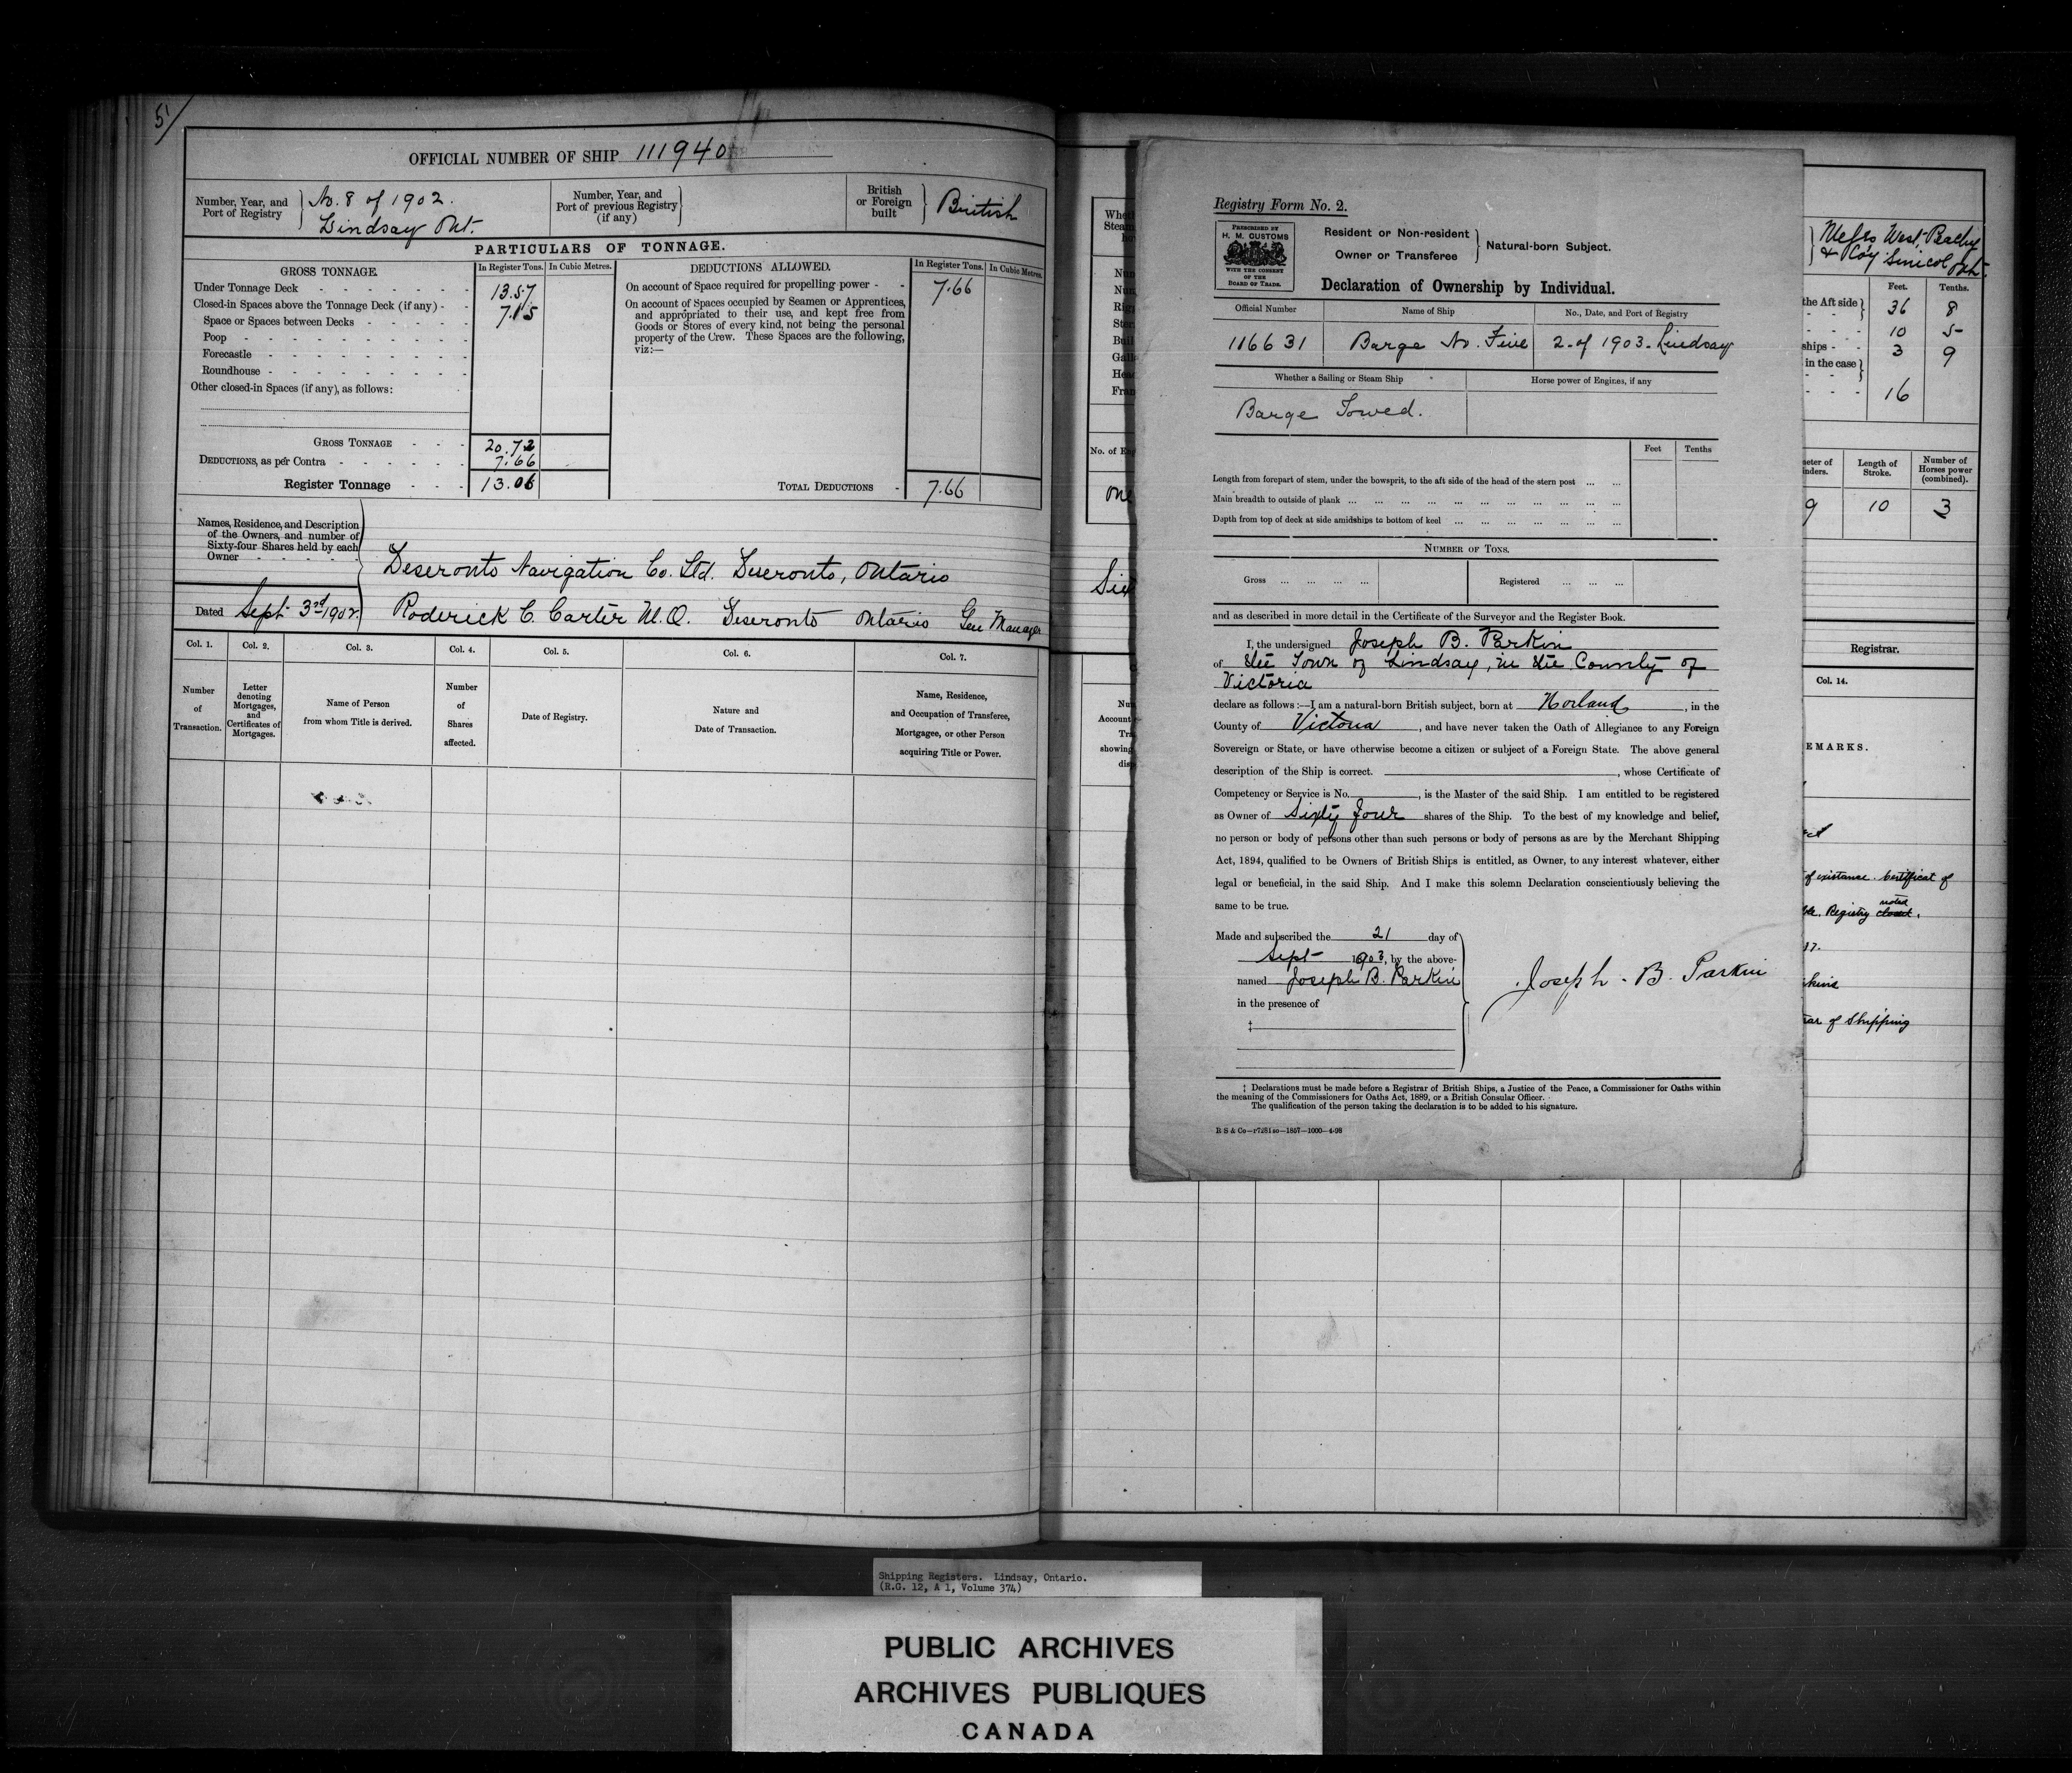 51
OFFICIAL NUMBER OF SHIP 111940
Number, Year, and Port of Registry } No. 8 of 1902. Lindsay Ont.
Number, Year, and Port of previous Registry (if any) }
British or Foreign built } British
PARTICULARS OF TONNAGE.
GROSS TONNAGE. In Register Tons. In Cubic Metres.
Under Tonnage Deck - 13.57
Closed-in Spaces above the Tonnage Deck (if any) - 7.15
Space or Spaces between Decks -
Poop -
Forecastle -
Roundhouse -
Other closed-in Spaces (if any), as follows:
GROSS TONNAGE - 20.72
DEDUCTIONS, as per Contra - 7.66
Register Tonnage - 13.06
DEDUCTIONS ALLOWED. In Register Tons. In Cubic Metres.
On account of Space required for propelling power - 7.66
On account of Spaces occupied by Seamen or Apprentices,
and appropriated to their use, and kept free from
Goods or Stores of every kind, not being the personal
property of the Crew. These Spaces are the following,
viz:—
TOTAL DEDUCTIONS - 7.66
Names, Residence, and Description
of the Owners, and number of
Sixty-four Shares held by each
Owner -
Deseronto Navigation Co. Ltd. Deseronto, Ontario
Dated Sept 3rd 1902. Roderick C. Carter M.O. Deseronto Ontario Gen Manager
Col. 1. Col. 2. Col. 3. Col. 4. Col. 5. Col. 6. Col. 7.
Number of Transaction.
Letter denoting Mortgages, and Certificates of Mortgages.
Name of Person from whom Title is derived.
Number of Shares affected.
Date of Registry.
Nature and Date of Transaction.
Name, Residence, and Occupation of Transferee, Mortgagee, or other Person acquiring Title or Power.
Registry Form No. 2.
PRESCRIBED BY
H. M. CUSTOMS
WITH THE CONSENT
OF THE
BOARD OF TRADE.
Resident or Non-resident
Owner or Transferee } Natural-born Subject.
Declaration of Ownership by Individual.
Official Number Name of Ship No., Date, and Port of Registry
116631 Barge No. Five 2 of 1903 Lindsay
Whether a Sailing or Steam Ship Horse power of Engines, if any
Barge Towed.
Feet Tenths
Length from forepart of stem, under the bowsprit, to the aft side of the head of the stern post ... ...
Main breadth to outside of plank ...
Depth from top of deck at side amidships to bottom of keel ...
NUMBER OF TONS.
Gross ... ... ... ... Registered ... ... ...
and as described in more detail in the Certificate of the Surveyor and the Register Book.
I, the undersigned Joseph B. Parkin
of the Town of Lindsay, in the County of
Victoria
declare as follows:—I am a natural-born British subject, born at Norland, in the
County of Victoria, and have never taken the Oath of Allegiance to any Foreign
Sovereign or State, or have otherwise become a citizen or subject of a Foreign State. The above general
description of the Ship is correct. , whose Certificate of
Competency or Service is No. , is the Master of the said Ship. I am entitled to be registered
as Owner of Sixty Four shares of the Ship. To the best of my knowledge and belief,
no person or body of persons other than such persons or body of persons as are by the Merchant Shipping
Act, 1894, qualified to be Owners of British Ships is entitled, as Owner, to any interest whatever, either
legal or beneficial, in the said Ship. And I make this solemn Declaration conscientiously believing the
same to be true.
Made and subscribed the 21 day of
Sept 1903, by the above-
named Joseph B. Parkin
in the presence of
‡
Joseph B. Parkin
‡ Declarations must be made before a Registrar of British Ships, a Justice of the Peace, a Commissioner for Oaths within
the meaning of the Commissioners for Oaths Act, 1889, or a British Consular Officer.
The qualification of the person taking the declaration is to be added to his signature.
Messrs West, Peachy
& Roy Simcoe Ont.
Feet. Tenths.
the Aft side } 36 8
10 5
ships - 3 9
in the case }
16
No. of Eng
One
Length of Stroke. Number of Horses power (combined).
9 10 3
Registrar.
Col. 14.
EMARKS.
of existance. Certificat of
Registry noted closed.
of Shipping
Shipping Registers. Lindsay, Ontario.
(R.G. 12, A 1, Volume 374)
PUBLIC ARCHIVES
ARCHIVES PUBLIQUES
CANADA